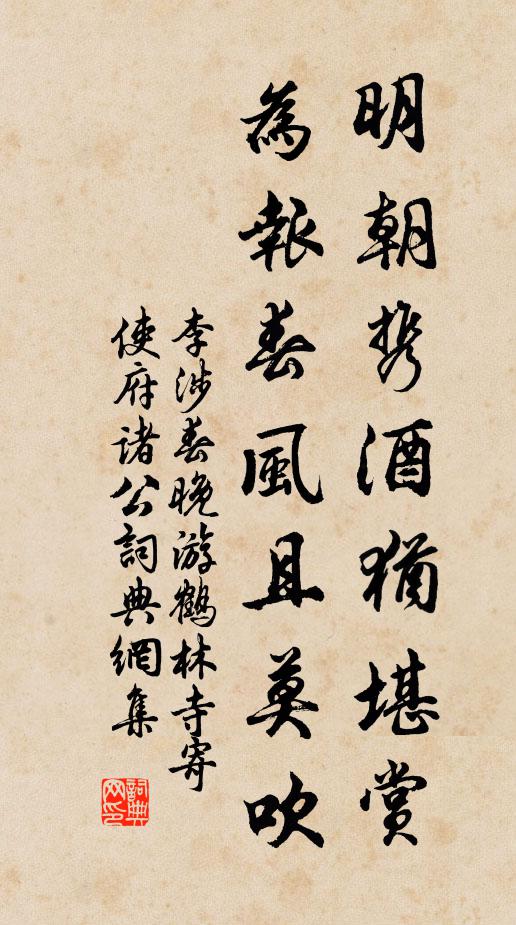 明朝携酒猶堪賞
為報春風且莫吹
李涉春晚游鶴林寺寄
使府諸公詞典網集
詞典网印